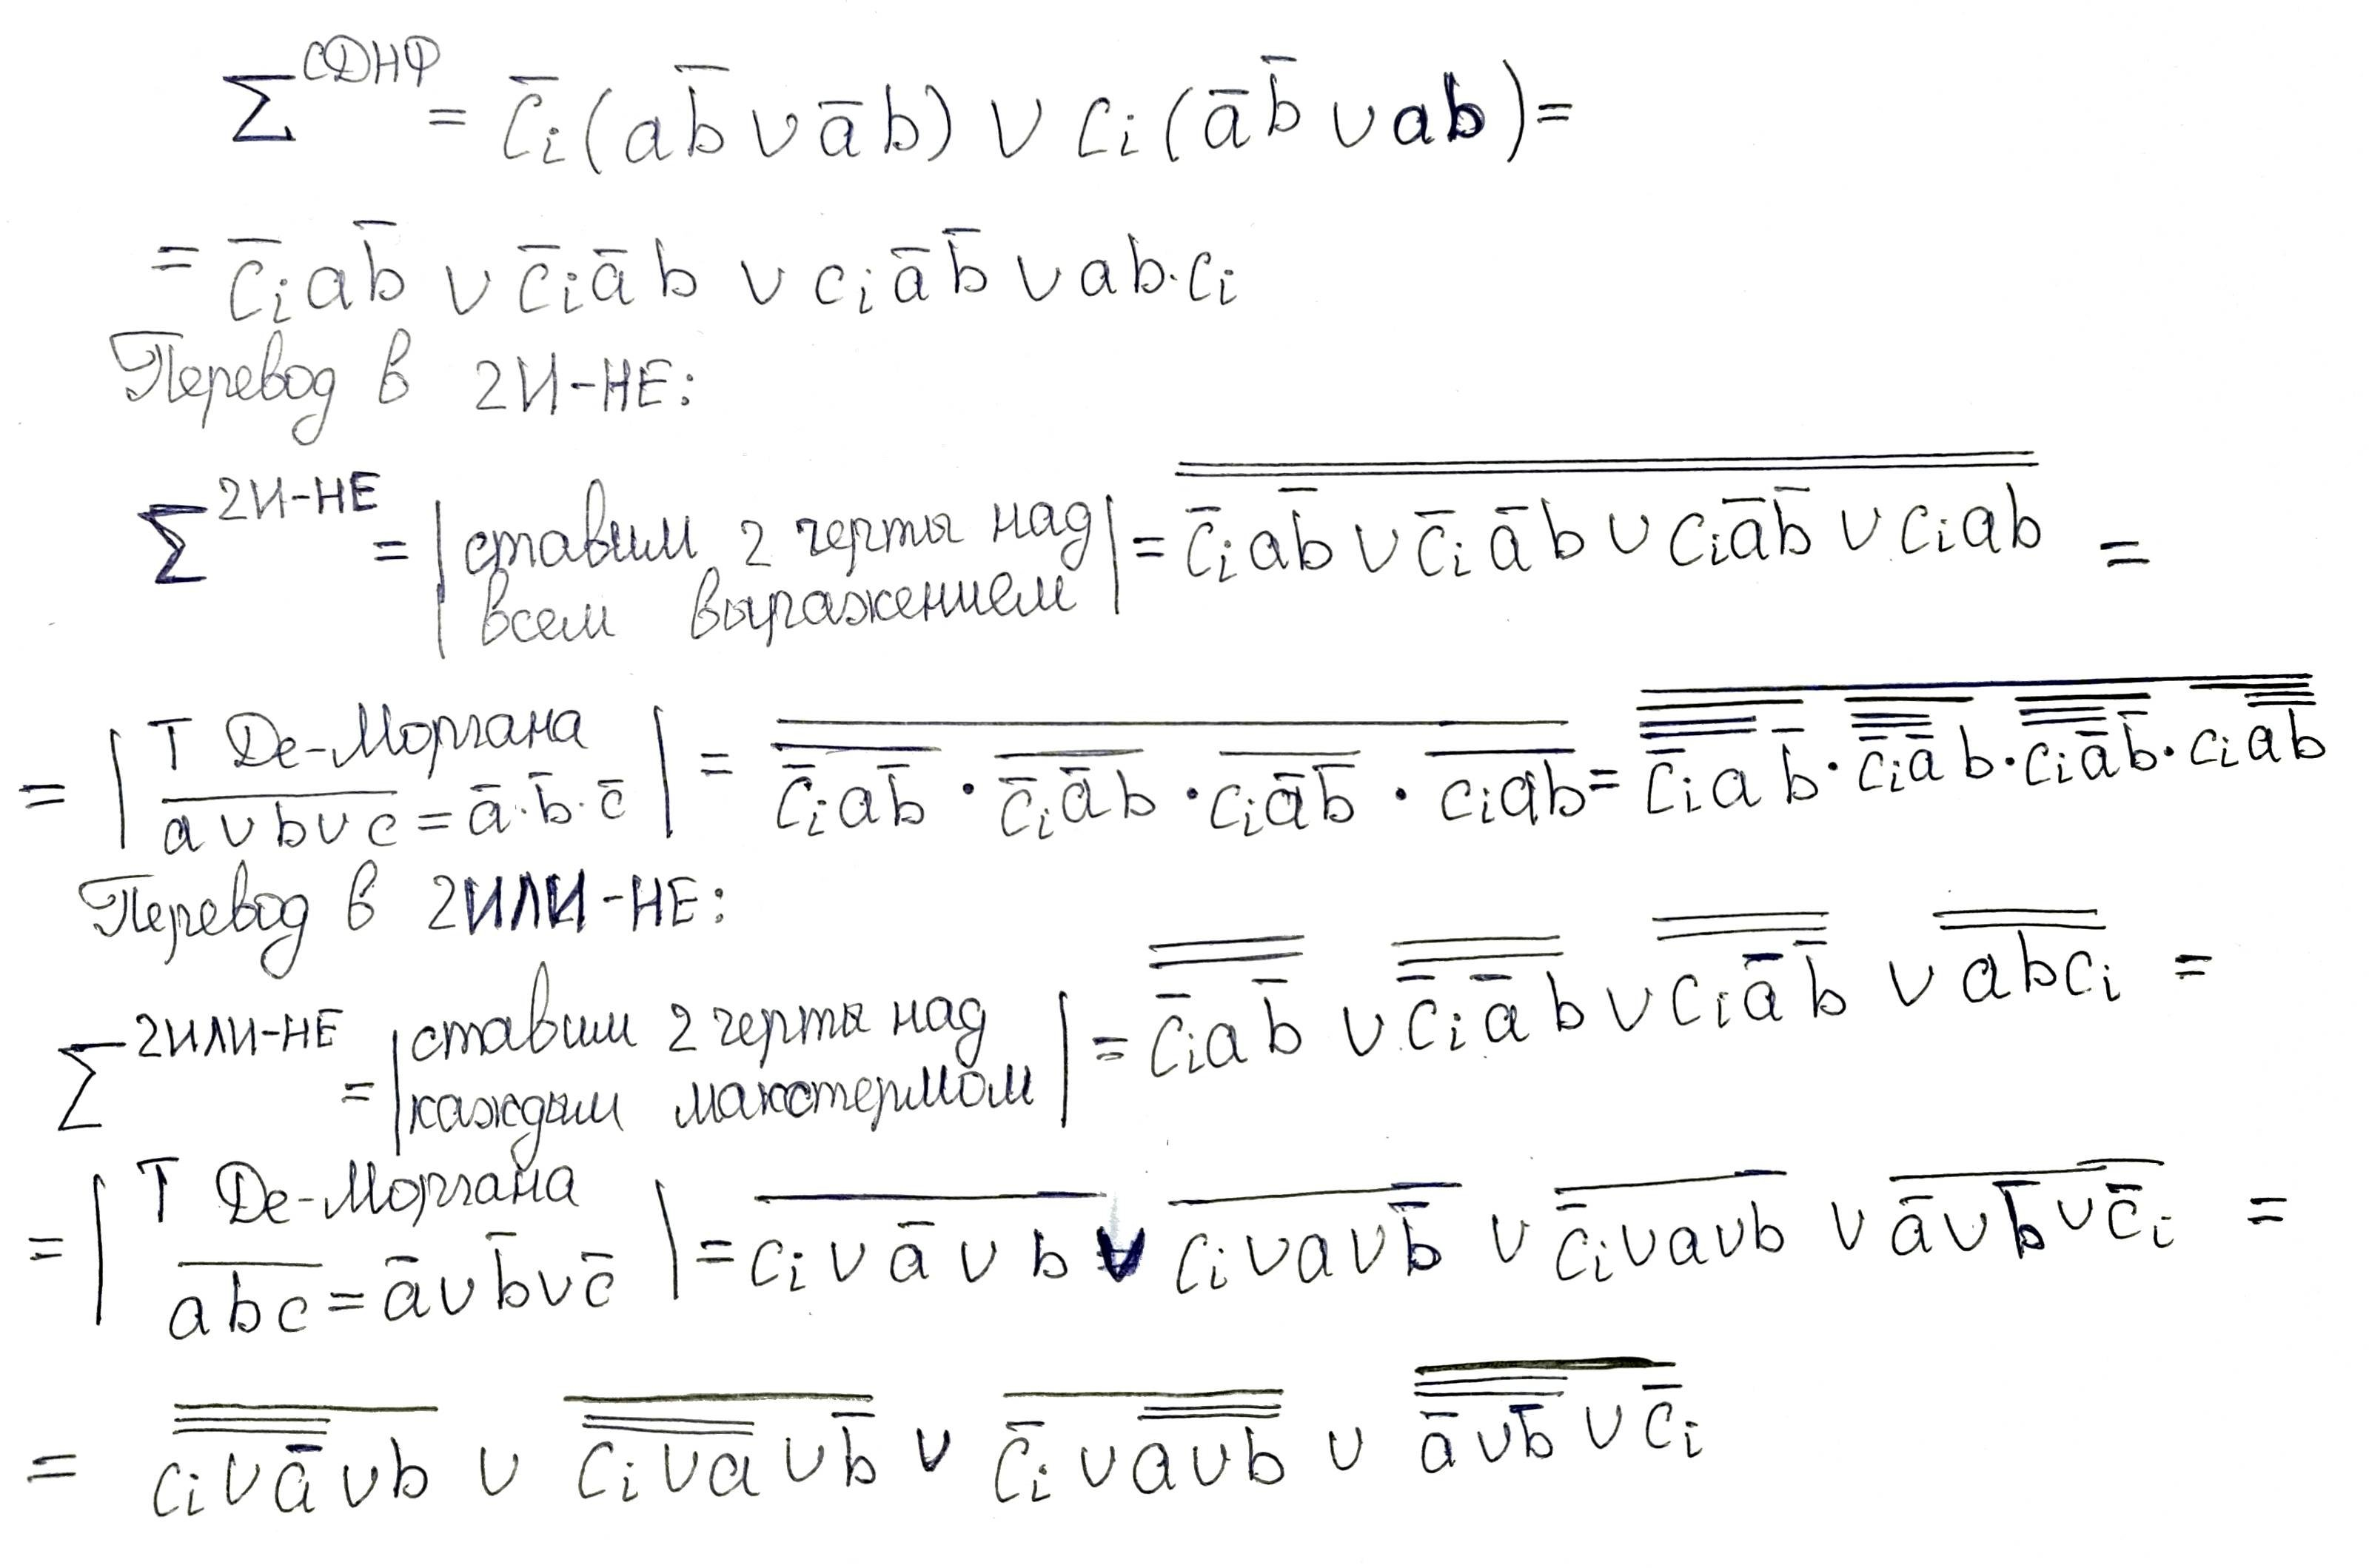 Σ^СДНФ = c̅ᵢ(ab̅ ∨ a̅b) ∨ cᵢ(a̅b̅ ∨ ab) =
= c̅ᵢab̅ ∨ c̅ᵢa̅b ∨ cᵢa̅b̅ ∨ ab·cᵢ
Перевод в 2И-НЕ:
Σ^2И-НЕ = | ставим 2 черты над всем выражением | = \overline{\overline{c̅ᵢab̅ ∨ c̅ᵢa̅b ∨ cᵢa̅b̅ ∨ cᵢab}} =
= | Т Де-Моргана \overline{a ∨ b ∨ c} = a̅·b̅·c̅ | = \overline{\overline{c̅ᵢab̅} · \overline{c̅ᵢa̅b} · \overline{cᵢa̅b̅} · \overline{cᵢab}} = \overline{\overline{\overline{\overline{c̅ᵢa}}b̅} · \overline{\overline{\overline{c̅ᵢa̅}}b} · \overline{\overline{\overline{cᵢa̅}}b̅} · \overline{cᵢ\overline{\overline{ab}}}}
Перевод в 2ИЛИ-НЕ:
Σ^2ИЛИ-НЕ = | ставим 2 черты над каждым макстермом | = \overline{\overline{c̅ᵢab̅}} ∨ \overline{\overline{c̅ᵢa̅b}} ∨ \overline{\overline{cᵢa̅b̅}} ∨ \overline{\overline{abcᵢ}} =
= | Т Де-Моргана \overline{abc} = a̅ ∨ b̅ ∨ c̅ | = \overline{cᵢ ∨ a̅ ∨ b} ∨ \overline{cᵢ ∨ a ∨ b̅} ∨ \overline{c̅ᵢ ∨ a ∨ b} ∨ \overline{a̅ ∨ b̅ ∨ c̅ᵢ} =
= \overline{\overline{\overline{cᵢ ∨ a̅}} ∨ b} ∨ \overline{\overline{\overline{cᵢ ∨ a}} ∨ b̅} ∨ \overline{c̅ᵢ ∨ \overline{\overline{a ∨ b}}} ∨ \overline{\overline{\overline{a̅ ∨ b̅}} ∨ c̅ᵢ}